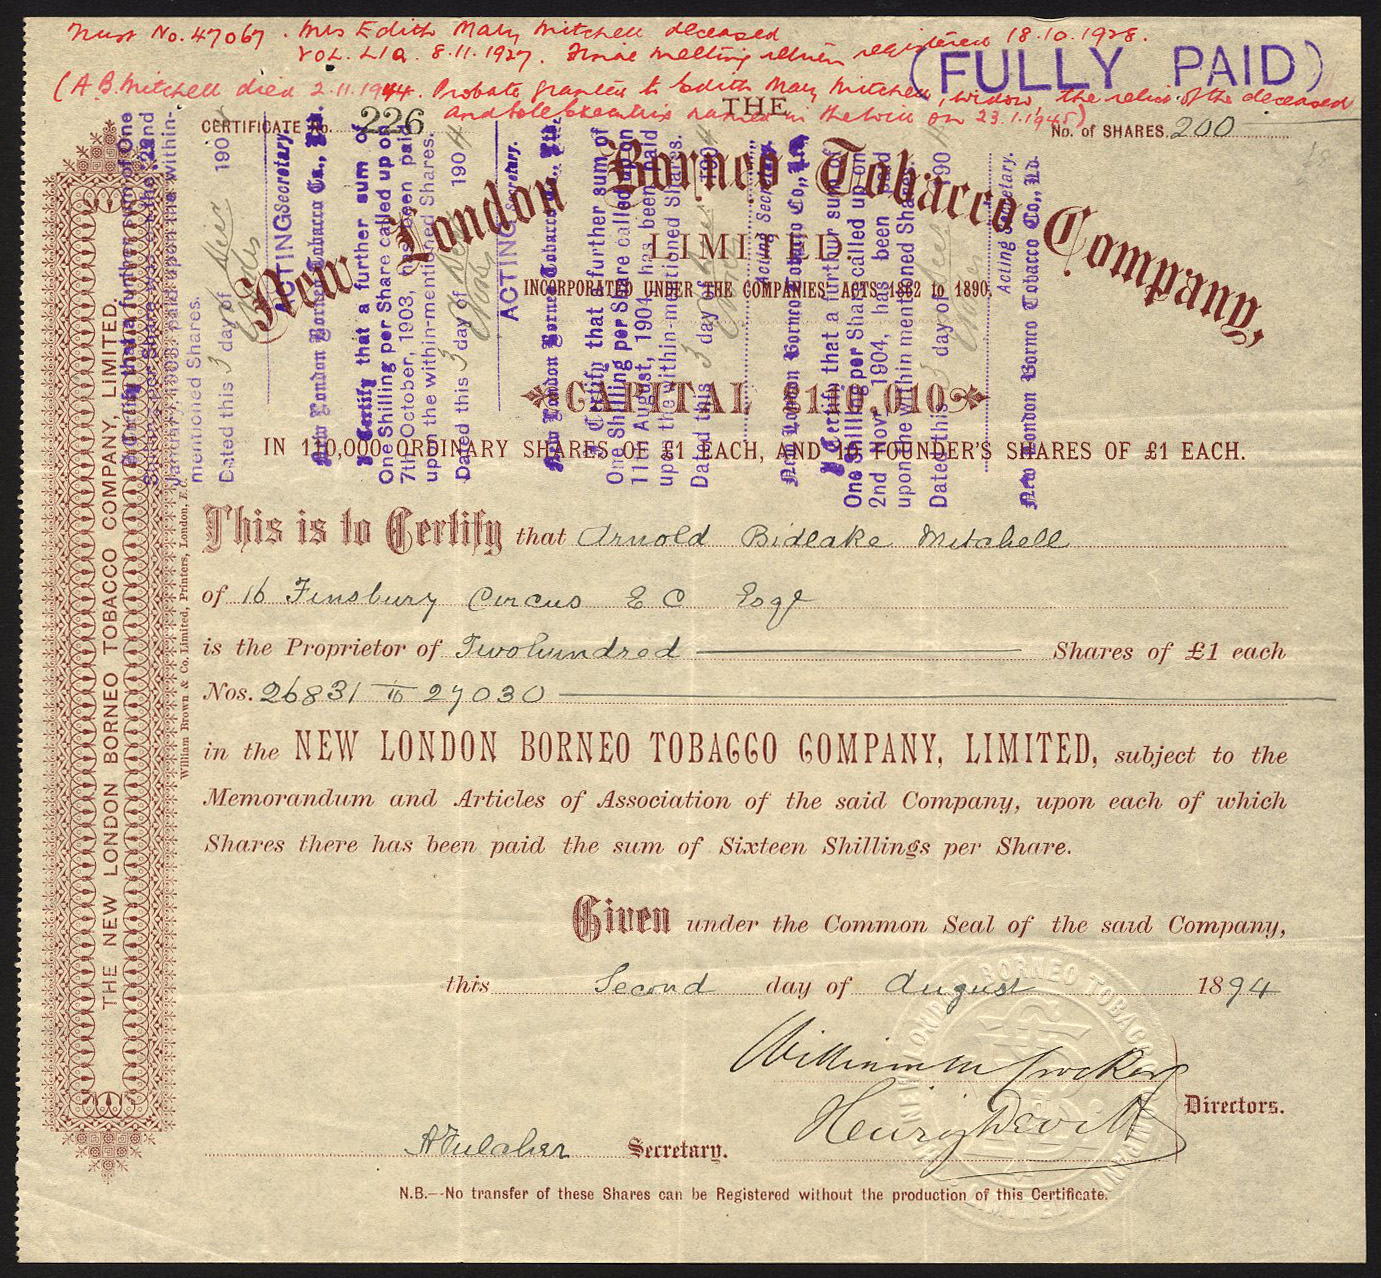 Trust No. 47067. Mrs Edith Mary Mitchell deceased
VOL. L1a. 8.11.1927. registered 18.10.1928.
(FULLY PAID)
(A.B. Mitchell died 2.11.1944. Probate granted to Edith Mary Mitchell, widow, the relict of the deceased
and sole Executrix named in the will on 23.1.1945)
CERTIFICATE No. 226
THE
No. of SHARES. 200
New London Borneo Tobacco Company,
LIMITED
INCORPORATED UNDER THE COMPANIES' ACTS 1862 to 1890.
CAPITAL £110,010
IN 110,000 ORDINARY SHARES OF £1 EACH, AND 10 FOUNDER'S SHARES OF £1 EACH.
I Certify that a further sum of One
Shilling per Share the 22nd
1903, paid upon the within-
mentioned Shares.
Dated this 3 day of Decr 1904
ACTING Secretary.
New London Borneo Tobacco Co., Ld.
I Certify that a further sum of
One Shilling per Share called up on
7th October, 1903, has been paid
upon the within-mentioned Shares.
Dated this 3 day of Decr 1904
ACTING Secretary.
New London Borneo Tobacco Co., Ld.
I Certify that a further sum of
One Shilling per Share called up on
11th August, 1904, has been paid
upon the within-mentioned Shares.
Dated this 3 day of 1904
Acting Secretary
New London Borneo Tobacco Co., Ld
I Certify that a further sum of
One Shilling per Share called up on
2nd Nov., 1904, has been paid
upon the within mentioned Shares.
Dated this 3 day of Decr 1904
Acting Secretary.
New London Borneo Tobacco Co., Ld.
This is to Certify that Arnold Bidlake Mitchell
of 16 Finsbury Circus E C Esqr
is the Proprietor of Two hundred Shares of £1 each
Nos. 26831 to 27030
in the NEW LONDON BORNEO TOBACCO COMPANY, LIMITED, subject to the
Memorandum and Articles of Association of the said Company, upon each of which
Shares there has been paid the sum of Sixteen Shillings per Share.
Given under the Common Seal of the said Company,
this Second day of August 1894
William M Crocker
Henry Devitt
Directors.
A Fulcher Secretary.
N.B.--No transfer of these Shares can be Registered without the production of this Certificate.
THE NEW LONDON BORNEO TOBACCO COMPANY, LIMITED.
William Brown & Co. Limited, Printers, London, E.C.
NEW LONDON BORNEO TOBACCO COMPANY LIMITED